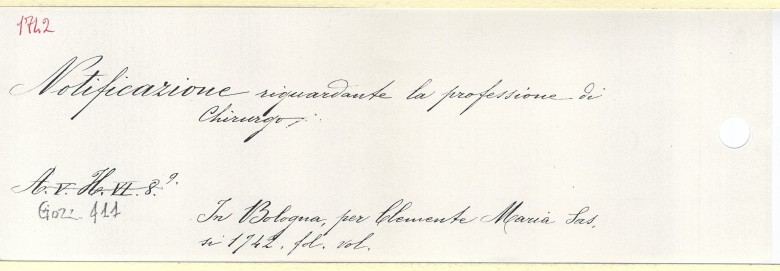 1742
Notificazione riguardante la professione di
Chirurgo,:
A. V. H. VI. 8.º
Gozz 411
In Bologna, per Clemente Maria Sas,
si 1742. fol. vol.